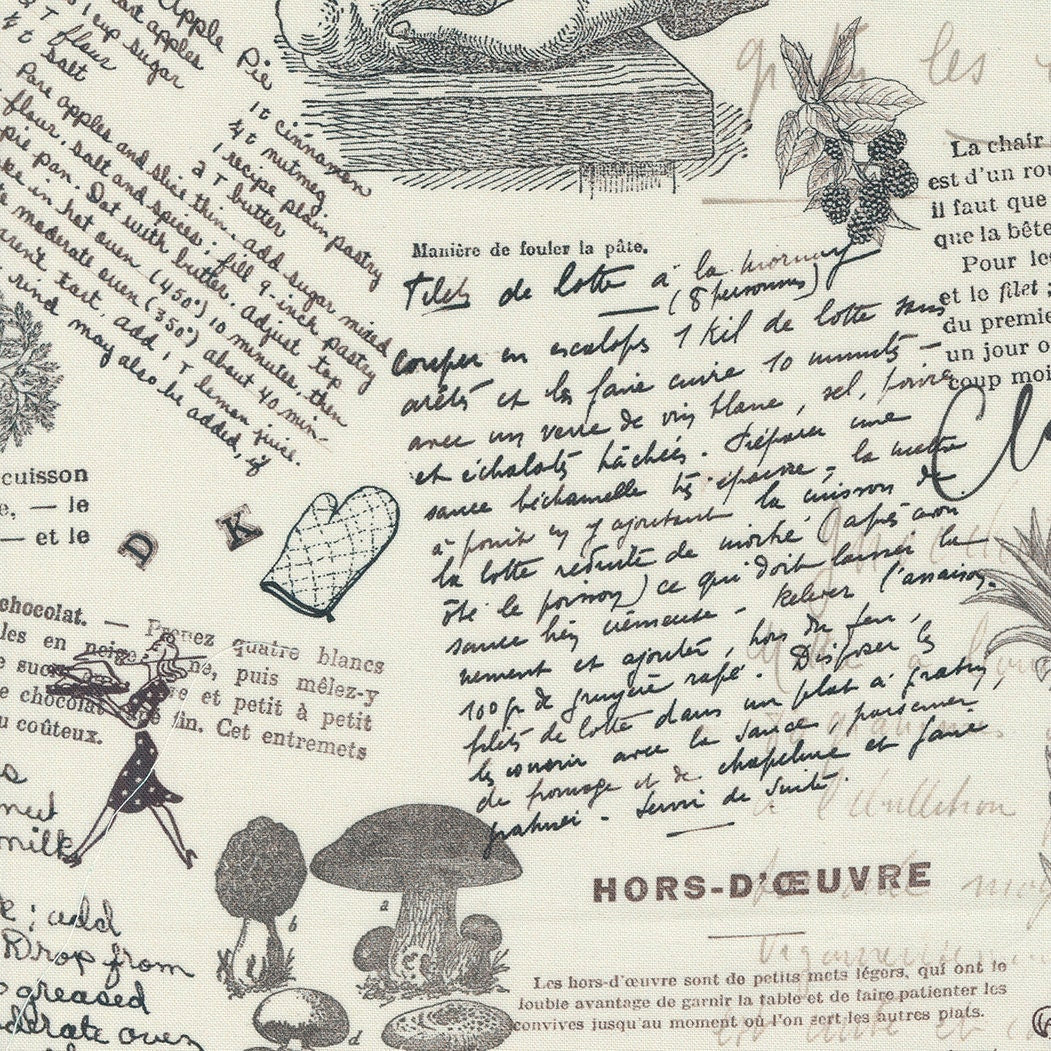 Apple Pie
tart apples
1 cup sugar
T flour
t salt
1 t cinnamon
¼ t nutmeg
1 recipe plain pastry
2 T butter
Pare apples and slice thin. add sugar mixed
flour, salt and spices; fill 9-inch pastry
pie pan. Dot with butter. Adjust top
in hot oven (450°) 10 minutes, then
moderate oven (350°) about 40 min-
tart, add 1 T lemon juice.
rind may also be added, if
Manière de fouler la pâte.
Filets de lotte à la mornay
(8 personnes)
Couper en escalops 1 Kil de lotte sans
arêtes et les faire cuire 10 minutes –
avec un verre de vin blanc, sel, poivre
et échalots hâchées. Préparer une
sauce béchamelle très épaisse, la mettre
à point en y ajoutant la cuisson de
la lotte réduite de moitié (après avoir
ôté le poisson) ce qui doit laisser la
sauce très crémeuse – Relever l'assaison-
nement et ajouter, hors du feu,
100 gr de gruyère rapé. Disposer les
filets de lotte dans un plat à gratin,
les couvrir avec la sauce, parsemer
de fromage et de chapelure et faire
gratiner – Servir de suite.
La chair
est d'un rou
il faut que
que la bête
Pour les
et le filet ;
du premie
un jour o
coup moi
les
cuisson
e, — le
— et le
D K
chocolat. — Prenez quatre blancs
les en neige, puis mêlez-y
e sucre et petit à petit
e chocolat fin. Cet entremets
u coûteux.
milk
; add
Drop from
greased
oven
b
a
d
l'ébullition
HORS-D'ŒUVRE
Les hors-d'œuvre sont de petits mets légers, qui ont le
louble avantage de garnir la table et de faire patienter les
convives jusqu'au moment où l'on sert les autres plats.